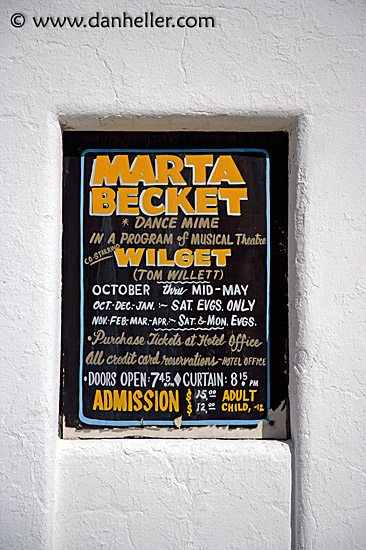 © www.danheller.com
MARTA
BECKET
* DANCE MIME
IN A PROGRAM of MUSICAL Theatre
CO-STARRING WILGET
(TOM WILLETT)
OCTOBER thru MID-MAY
OCT.-DEC.-JAN.:~ SAT. EVGS. ONLY
NOV.-FEB.-MAR.-APR.:~ SAT. & MON. EVGS.
• Purchase Tickets at Hotel Office •
All credit card reservations - HOTEL OFFICE
• DOORS OPEN: 7:45 PM ♦ CURTAIN: 8:15 PM
ADMISSION $ 15.00 ADULT
$ 12.00 CHILD, -12